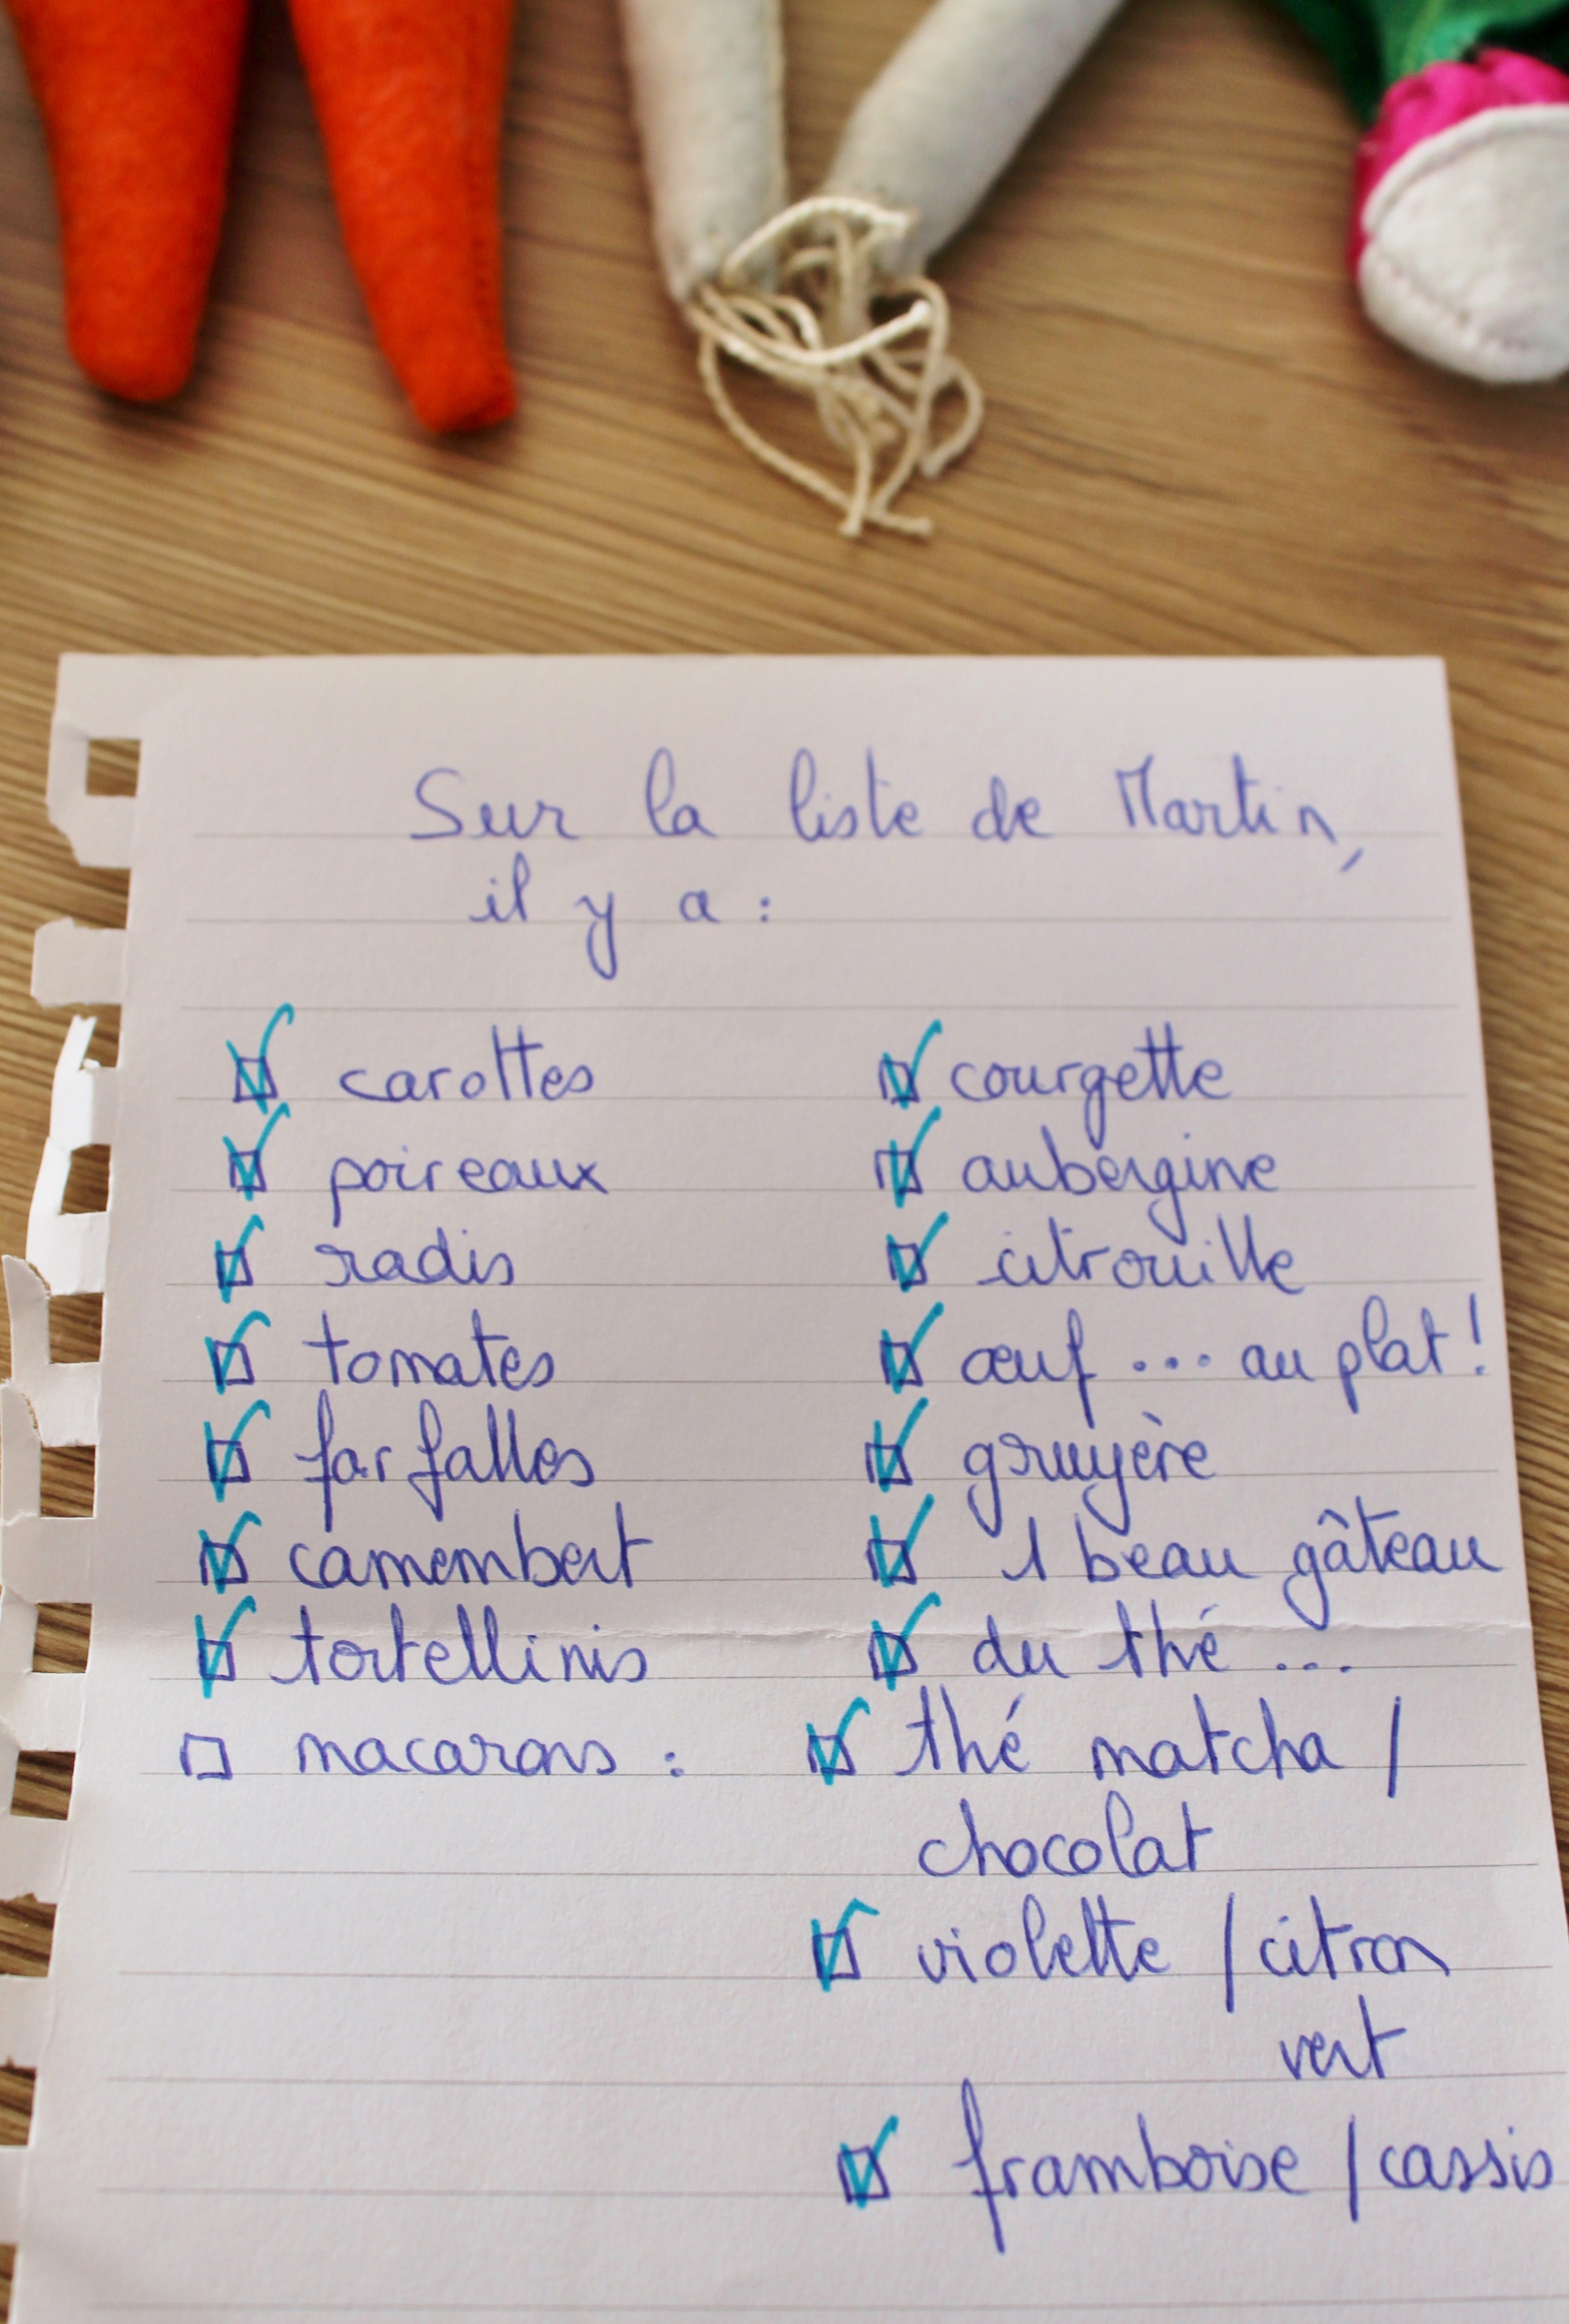 Sur la liste de Martin,
il y a :
☑ carottes
☑ poireaux
☑ radis
☑ tomates
☑ farfalles
☑ camembert
☑ tortellinis
☐ macarons :
☑ courgette
☑ aubergine
☑ citrouille
☑ œuf ... au plat !
☑ gruyère
☑ 1 beau gâteau
☑ du thé ...
☑ thé matcha /
chocolat
☑ violette / citron
vert
☑ framboise / cassis